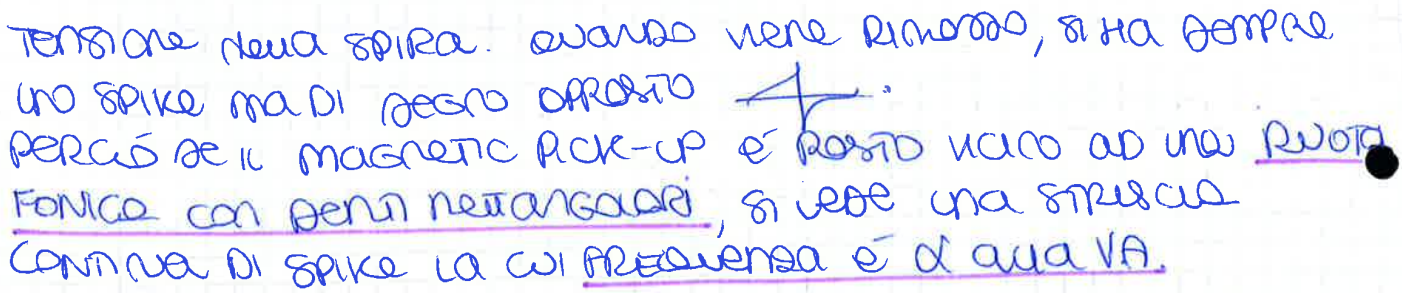 TENSIONE NELLA SPIRA. QUANDO VIENE RIMOSSO, SI HA SEMPRE
UNO SPIKE MA DI SEGNO OPPOSTO .
PERCIÓ SE IL MAGNETIC PICK-UP É POSTO VICINO AD UNA RUOTA
FONICA CON DENTI RETTANGOLARI, SI VEDE UNA STRISCIA
CONTINUA DI SPIKE LA CUI FREQUENZA É α ALLA VA.